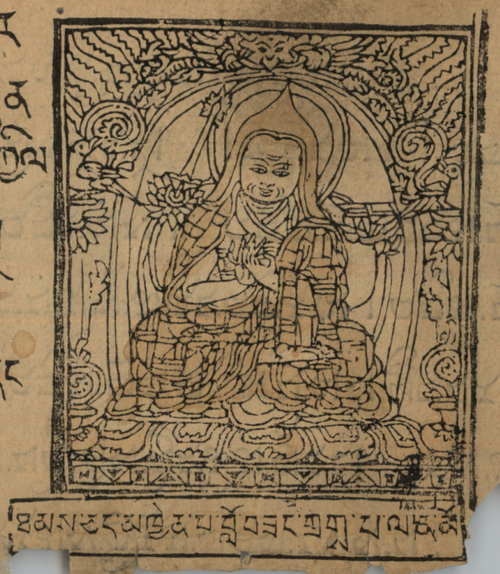 ཐམས་ཅད་མཁྱེན་པ་བློ་བཟང་གྲགྶ་པ་ལ་ན་མོ